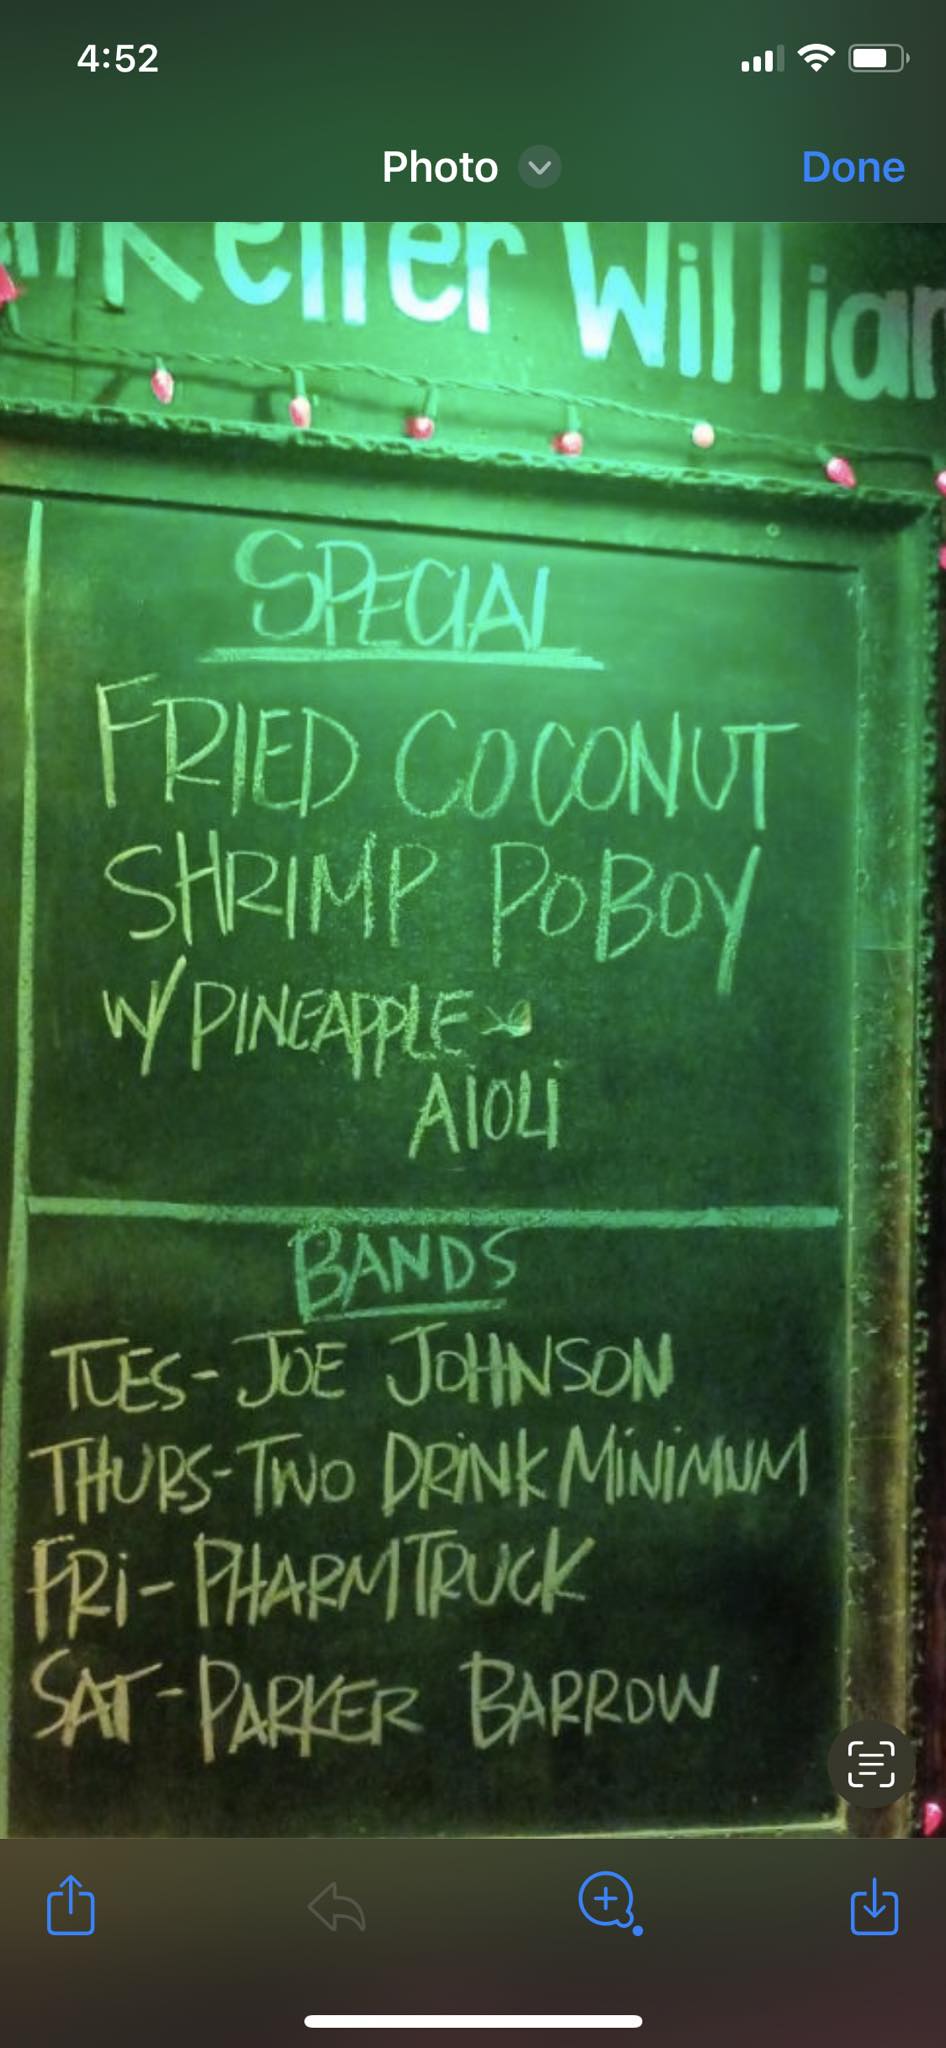 4:52
Photo
Done
Keller Williar
SPECIAL
FRIED COCONUT
SHRIMP POBOY
W/ PINEAPPLE
AIOLI
BANDS
TUES- JOE JOHNSON
THURS-TWO DRINK MINIMUM
FRI- PHARMTRUCK
SAT- PARKER BARROW